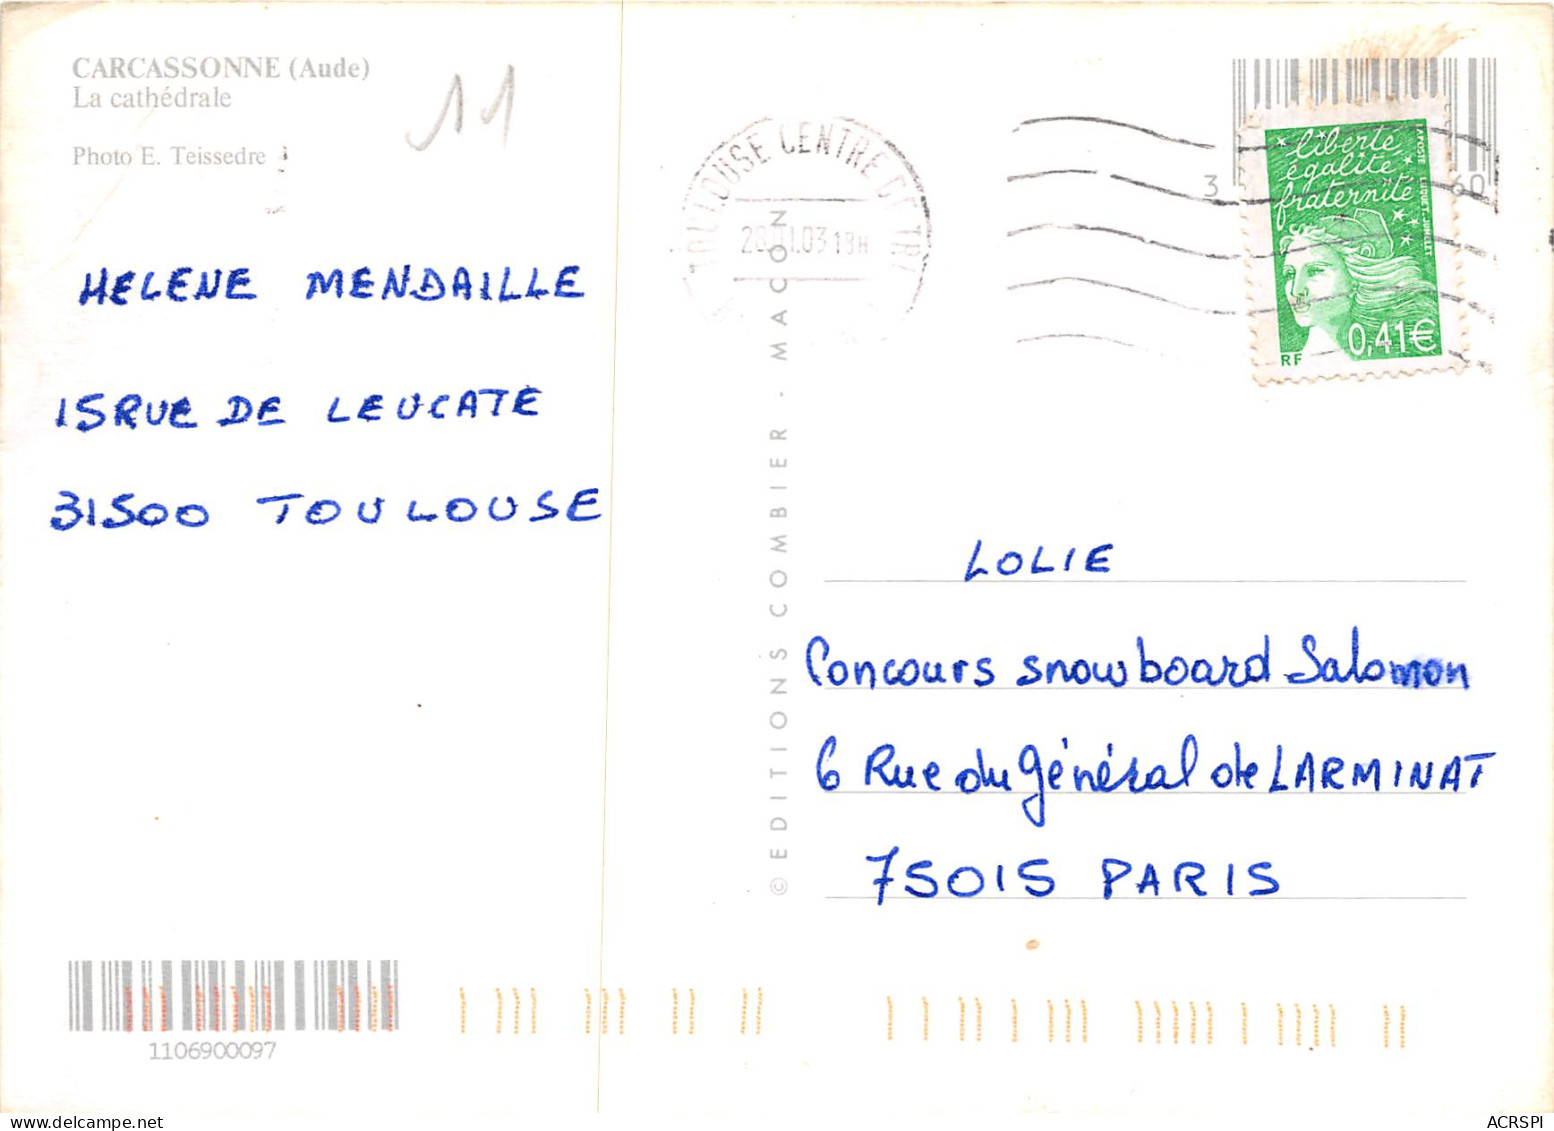 CARCASSONNE (Aude)
La cathédrale
Photo E. Teissedre
11
HELENE MENDAILLE
15 RUE DE LEUCATE
31500 TOULOUSE
TOULOUSE CENTRE DE TRI
28.01.03 18H
© EDITIONS COMBIER - MACON
3
60
liberté
égalité
fraternité
LA POSTE
RF
0,41€
LOLIE
Concours snowboard Salomon
6 Rue du Général de LARMINAT
75015 PARIS
1106900097
ACRSPI